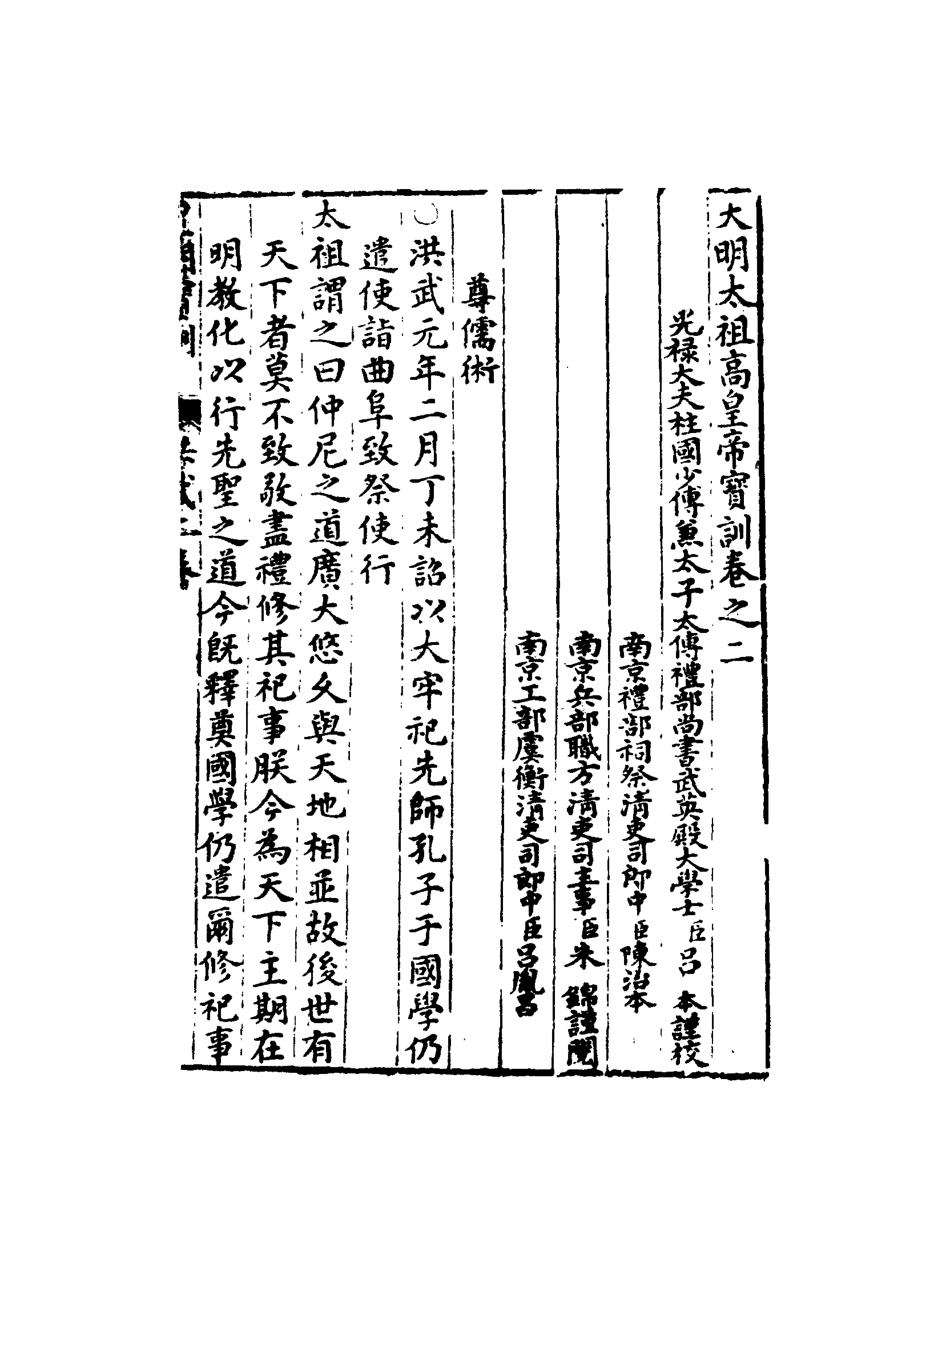 大明太祖高皇帝寶訓卷之二
光禄大夫柱國少傅兼太子太傅禮部尚書武英殿大學士臣呂 本謹校
南京禮部祠祭清吏司郎中臣陳治本
南京兵部職方清吏司主事臣朱 錦謹閱
南京工部虞衡清吏司郎中臣呂胤昌
尊儒術
○洪武元年二月丁未詔以大牢祀先師孔子于國學仍
遣使詣曲阜致祭使行
太祖謂之曰仲尼之道廣大悠久與天地相並故後世有
天下者莫不致敬盡禮修其祀事朕今為天下主期在
明教化以行先聖之道今既釋奠國學仍遣爾修祀事